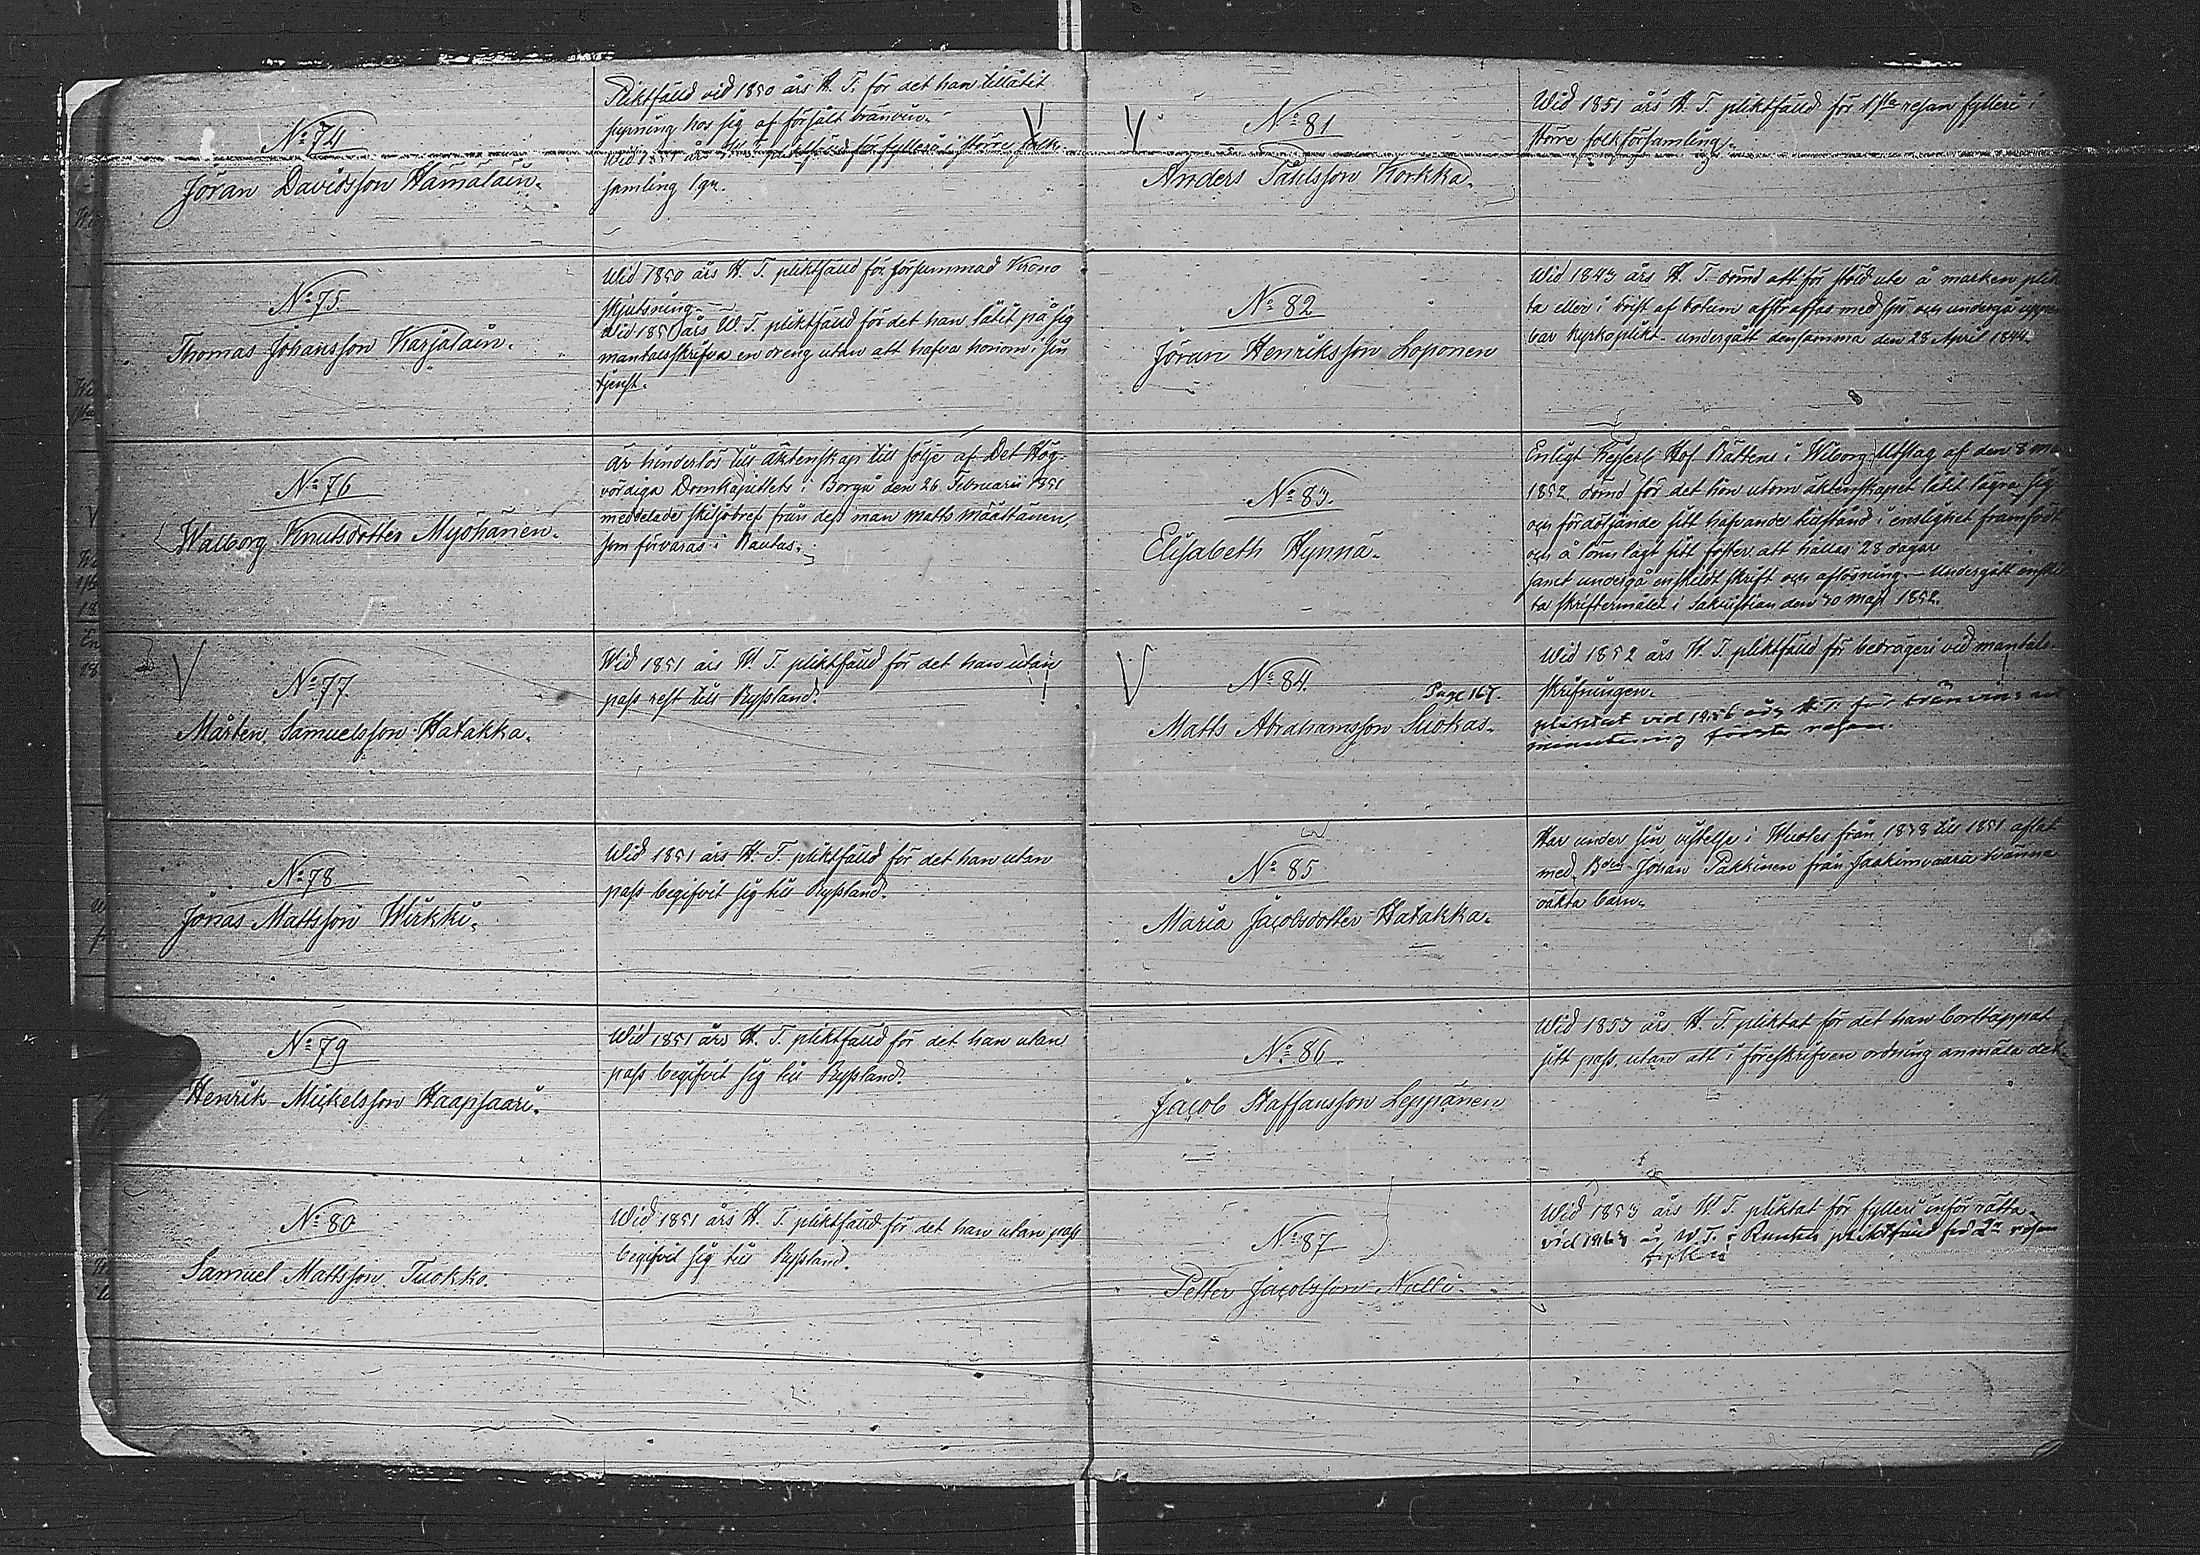 No 74
Jöran Davidsson Hämäläin.
Pliktfäld vid 1850 års H. T. för det han tillåtit
supning hos sig af försåldt bränvin.
Wid 1851 års W. T. pliktfäld för fylleri i större folk
samling 1 gn.
No 75.
Thomas Johansson Karjalain.
Wid 1850 års H. T. pliktfäld för försummad Krono
skjutsning.
Wid 1851 års W. T. pliktfäld för det han låtit på sig
mantalsskrifva en dreng utan att hafva honom i sin
tjenst.
No 76
Walborg Knutsdotter Myöhänen.
är hinderlös till äktenskap till följe af Det Hög
vördiga Domkapitlets i Borgå den 26 Februarii 1851
meddelade skiljobref från dess man Matts Määttänen,
som förvaras i Rautus.
No 77.
Mårten Samuelsson Hatakka.
Wid 1851 års W. T. pliktfäld för det han utan
pass rest till Ryssland.
No 78
Jonas Mattsson Wirkki.
Wid 1851 års H. T. pliktfäld för det han utan
pass begifvit sig till Ryssland.
No 79
Henrik Mickelsson Haapsaari.
Wid 1851 års H. T. pliktfäld för det han utan
pass begifvit sig till Ryssland.
No 80
Samuel Mattsson Tuokko.
Wid 1851 års H. T. pliktfäld för det han utan pass
begifvit sig till Ryssland.
No 81
Anders Påhlsson Korkka.
Wid 1851 års H. T. pliktfäld för 1sta resan fylleri i
större folkförsamling.
No 82
Jöran Henriksson Loponen
Wid 1843 års H. T. dömd att för stöld ute å marken plik
ta eller i brist af botum afstraffas med spö och undergå uppen
bar Kyrkoplikt. undergått densamma den 28 April 1844.
No 83.
Elisabeth Hynnä.
Enligt Kejserl Hof Rättens i Wiborg Utslag af den 8
1852 dömd för det hon utom äktenskapet låtit lägra sig
och fördöljande sitt hafvande tillstånd i enslighet framfödt
och å lönn lagt sitt foster att hållas 28 dagar
samt undergå enskildt skrift och aflösning. Undergått enskil
ta skriftermålet i Sakristian den 30 Maji 1852.
No 84.
Page 167.
Matts Abrahamsson Suokas.
Wid 1852 års H. T. pliktfäld för bedrägeri vid mantals-
skrifningen.
pliktat vid 1856 års H. T. för bränvins
minutering första resan
No 85
Maria Jacobsdotter Hatakka.
Har under sin vistelse i Wuoles från 1838 till 1851 aflat
med Bon Johan Pakkinen från Jaakimvaara tvänne
oäkta barn.
No 86.
Jacob Staffansson Leppänen
Wid 1853 års H. T. pliktat för det han borttappat
sitt pass, utan att i föreskrifven ordning anmäla det.
No 87
Petter Jacobsson Nalli.
Wid 1853 års W. T. pliktat för fylleri inför rätta.
vid 1863 års W. T. i Rautus pliktfäld för 2a resan
fylleri